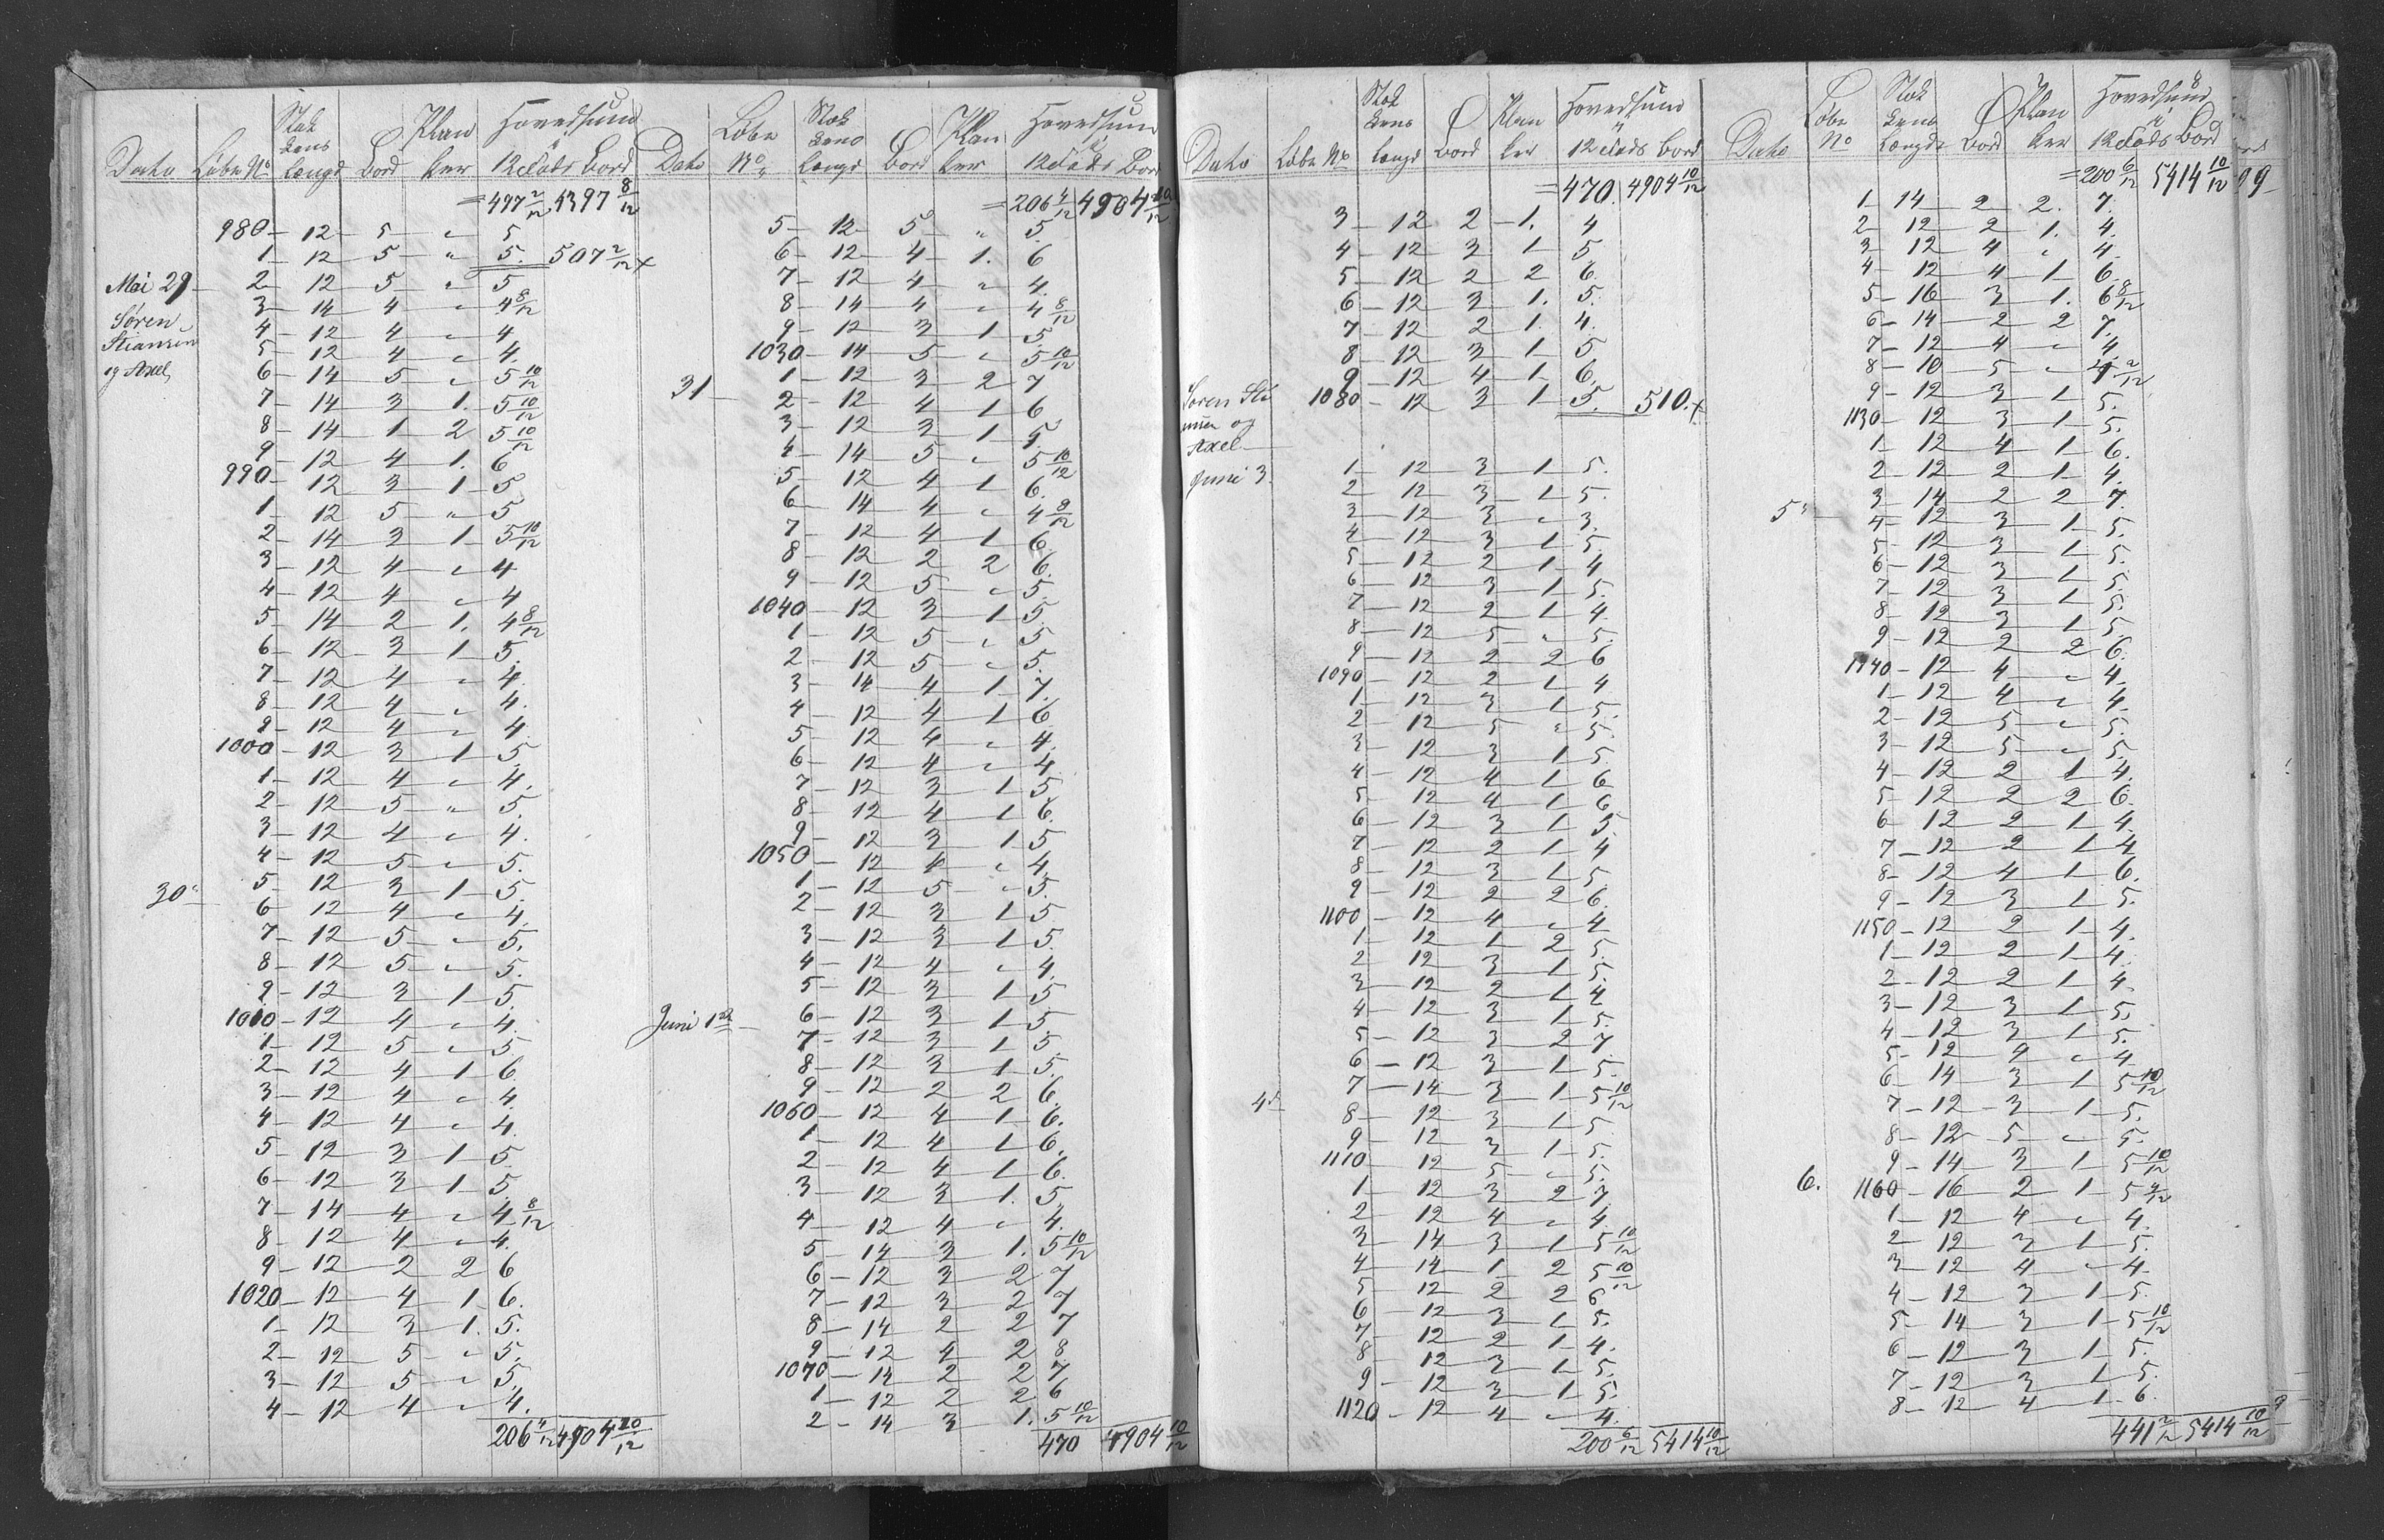 Dato Løbe No Stok kens Længd Bord Plan ker Hovedsum a 12 Fods Bord
= 497 2/12 4397 8/12
980 12 5 " 5
1 12 5 " 5. 507 2/12 +
Mai 29 2 12 5 " 5
Søren 3 14 4 " 4 8/12
Stiansen 4 12 4 " 4
og Axel, 5 12 4 " 4.
6 14 5 " 5 10/12
7 14 3 1. 5 10/12
8 14 1 2 5 10/12
9 12 4 1. 6
990 12 3 1 5
1 12 5 " 5
2 14 3 1 5 10/12
3 12 4 " 4
4 12 4 " 4
5 14 2 1. 4 8/12
6 12 3 1 5.
7 12 4 " 4.
8 12 4 " 4.
9 12 4 " 4.
1000 12 3 1 5.
1 12 4 " 4.
2 12 5 " 5.
3 12 4 " 4.
4 12 5 " 5.
30 5 12 3 1 5.
6 12 4 " 4.
7 12 5 " 5.
8 12 5 " 5.
9 12 3 1 5.
1010 12 4 " 4.
1 12 5 " 5
2 12 4 1 6.
3 12 4 " 4.
4 12 4 " 4.
5 12 3 1 5
6 12 3 1 5.
7 14 4 " 4 8/12
8 12 4 " 4.
9 12 2 2 6
1020 12 4 1 6.
1 12 3 1. 5.
2 12 5 " 5.
3 12 5 " 5.
4 12 4 " 4.
206 4/12 4904 10/12
Dato Løbe No Stok kens Længd Bord Plan ker Hovedsum a 12 Fods Bord
= 206 4/12 4904 10/12
5 12 5 " 5.
6 12 4 1. 6
7 12 4 " 4.
8 14 4 " 4 8/12
9 12 3 1 5.
1030 14 5 " 5 10/12
31 1 12 3 2 7
2 12 4 1 6
3 12 3 1 5.
4 14 5 " 5 10/12
5 12 4 1 6.
6 14 4 " 4 8/12
7 12 4 1 6.
8 12 2 2 6.
9 12 5 " 5.
1040 12 3 1 5.
1 12 5 " 5
2 12 5 " 5.
3 14 4 1 7.
4 12 4 1 6
5 12 4 " 4.
6 12 4 " 4
7 12 3 1 5
8 12 4 1 6.
9 12 3 1 5
1050 12 4 " 4.
1 12 5 " 5.
2 12 3 1 5
3 12 3 1 5.
4 12 4 " 4.
5 12 3 1 5
Juni 1ste 6 12 3 1 5.
7 12 3 1 5
8 12 3 1 5.
9 12 2 2 6.
1060 12 4 1 6.
1 12 4 1 6.
2 12 4 1 6.
3 12 3 1. 5
4 12 4 " 4.
5 14 3 1. 5 10/12
6 12 3 2 7
7 12 3 2 7
8 14 2 2 7
9 12 4 2 8
1070 14 2 2 7
1 12 2 2 6
2 14 3 1. 5 10/12
470 4904 10/12
Dato Løbe No Stok kens Længd Bord Plan ker Hovedsum a 12 Fods Bord
= 470. 4904 10/12
3 12 2 1. 4
4 12 3 1 5
5 12 2 2 6.
6 12 3 1. 5.
7 12 2 1. 4.
8 12 3 1 5
9 12 4 1 6.
Søren Sti 1080 12 3 1 5. 510. +
ansen og
Axel
Juni 3. 1 12 3 1 5.
2 12 3 1 5.
3 12 3 " 3.
4 12 3 1 5
5 12 2 1 4
6 12 3 1 5.
7 12 2 1 4.
8 12 5 " 5.
9 12 2 2 6
1090 12 2 1 4
1 12 3 1 5.
2 12 5 " 5.
3 12 3 1 5
4 12 4 1 6
5 12 4 1 6.
6 12 3 1 5
7 12 2 1 4
8 12 3 1 5
9 12 2 2 6.
1100 12 4 " 4
1 12 1 2 5.
2 12 3 1 5.
3 12 2 1 4
4 12 3 1 5.
5 12 3 2 7
6 12 3 1 5.
7 14 3 1 5 10/12
4 8 12 3 1 5
9 12 3 1 5.
1110 12 5 " 5.
1 12 3 2 7
2 12 4 " 4.
3 14 3 1 5 10/12
4 14 1 2 5 10/12
5 12 2 2 6
6 12 3 1 5.
7 12 2 1 4.
8 12 3 1 5.
9 12 3 1 5.
1120 12 4 " 4.
200 6/12 5414 10/12
Dato Løbe No Stok kens Længde Bord Plan ker Hovedsum a 12 Fods Bord
= 200 6/12 5414 10/12
1 14 2 2. 7.
2 12 2 1. 4.
3 12 4 " 4.
4 12 4 1 6.
5 16 3 1. 6 8/12
6 14 2 2 7.
7 12 4 " 4
8 10 5 " 4 2/12
9 12 3 1 5.
1130 12 3 1 5.
1 12 4 1 6.
2 12 2 1 4.
3 14 2 2 7.
5 4 12 3 1 5.
5 12 3 1 5.
6 12 3 1 5.
7 12 3 1 5.
8 12 3 1 5
9 12 2 2 6.
1140 12 4 " 4.
1 12 4 " 4.
2 12 5 " 5.
3 12 5 " 5.
4 12 2 1 4.
5 12 2 2 6.
6 12 2 1 4.
7 12 2 1 4
8 12 4 1 6.
9 12 3 1 5.
1150 12 2 1 4.
1 12 2 1 4.
2 12 2 1 4
3 12 3 1 5
4 12 3 1 5.
5 12 4 " 4
6 14 3 1 5 10/12
7 12 3 1 5.
8 12 5 " 5.
9 14 3 1 5 10/12
6. 1160 16 2 1 5 4/12
1 12 4 " 4.
2 12 3 1 5.
3 12 4 " 4
4 12 3 1 5.
5 14 3 1 5 10/12
6 12 3 1 5.
7 12 3 1 5.
8 12 4 1 6.
441 2/12 5414 10/12